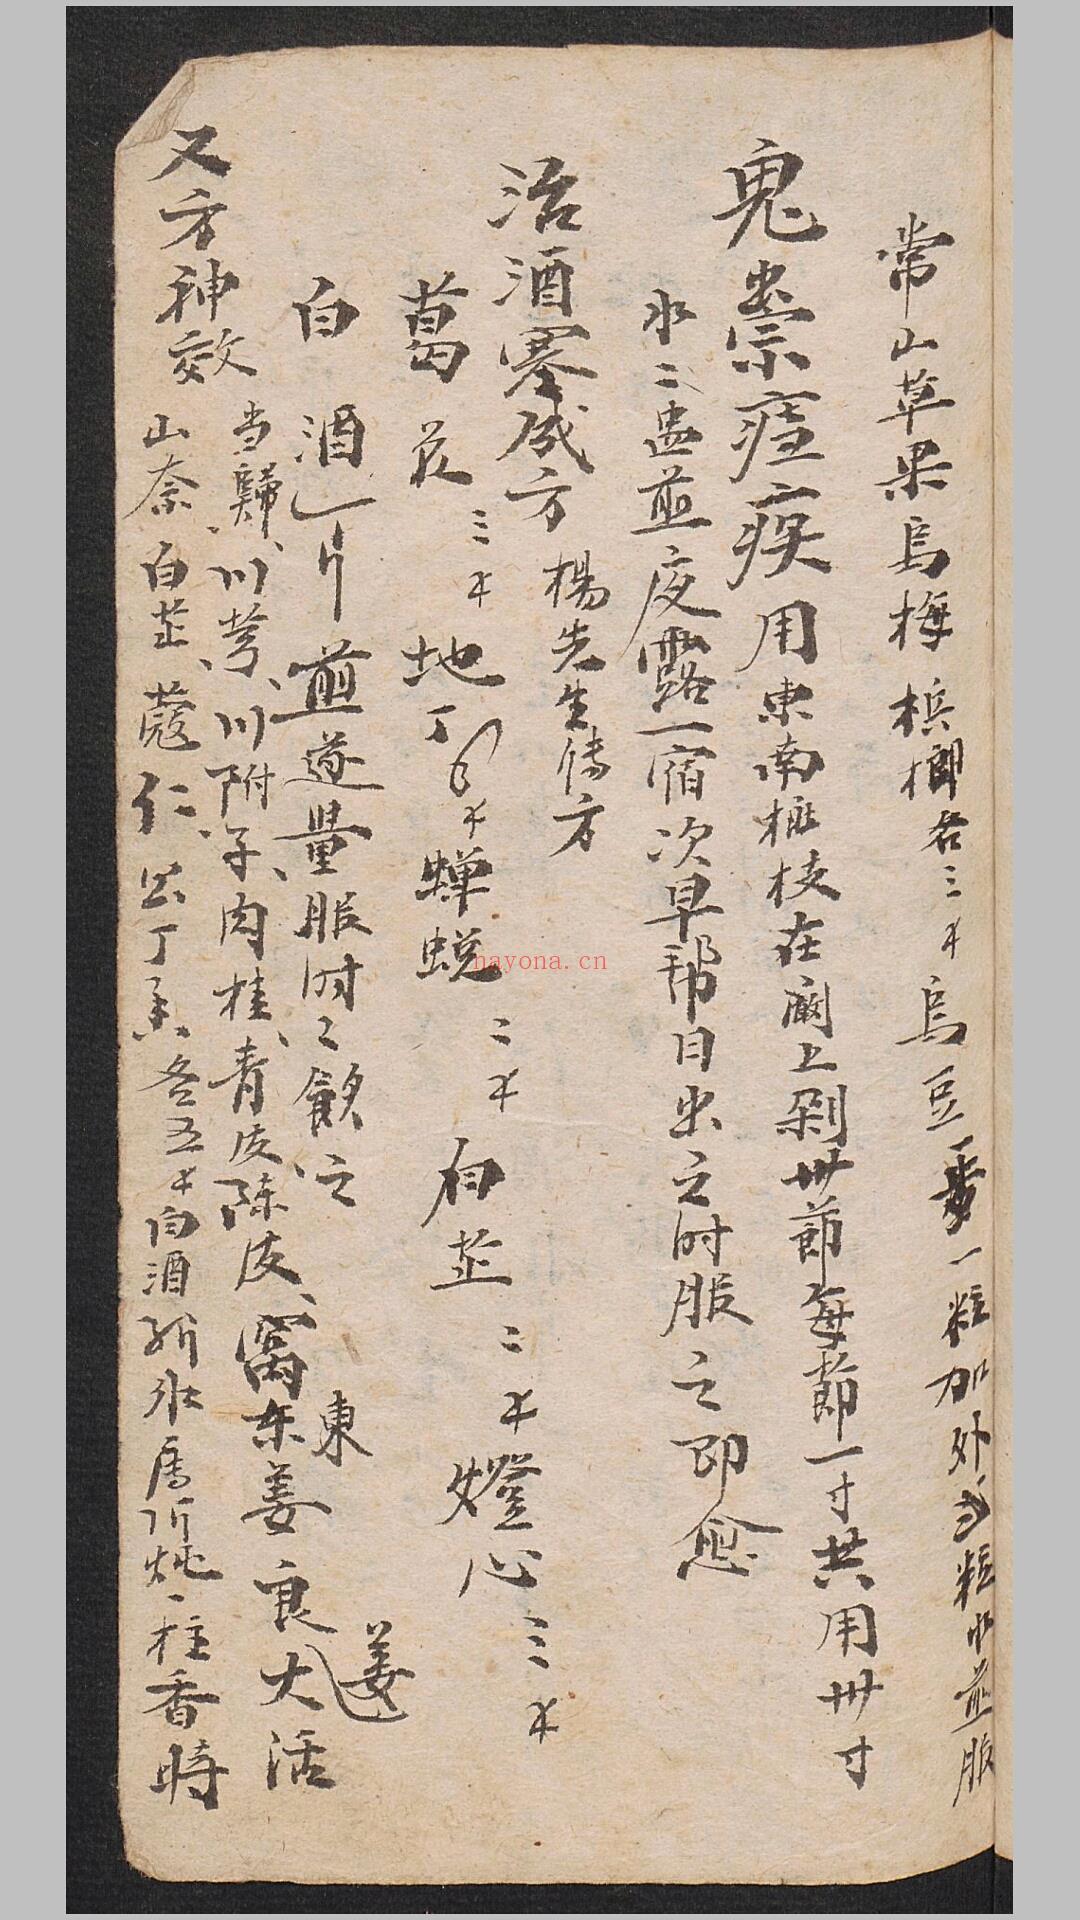 常山草果烏梅梹榔各三𠦑烏豆一粒加外粒水煎服
鬼祟瘧疾用東南桃枝在閣上剁卅節每節一寸共用卅寸
水二盅煎夜露一宿次早帮日出之时服之即愈
治酒方楊先生傳方
葛花三𠦑地丁𠦑蟬蜕二𠦑白芷二𠦑燈心三𠦑
白酒斤煎遂量服时〻飲之
又方神效
当歸、川芎、川附子、肉桂、青皮陈皮、窩东姜良大活
東
姜
山奈白芷蔻仁公丁香各五𠦑白酒水炖一柱香時
nayona.cn